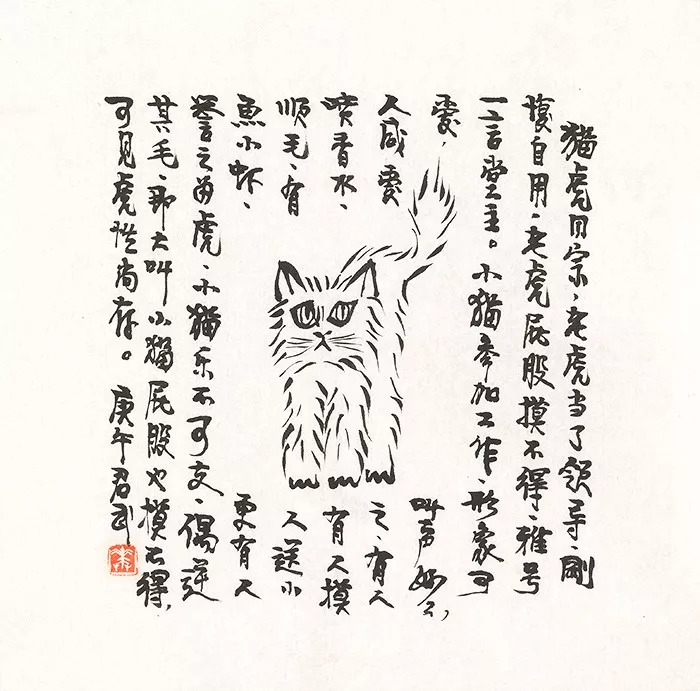 貓虎同宗、老虎当了領导、剛
愎自用、老虎屁股摸不得、雅号
一言堂主。小貓参加工作、形象可
愛，叫声妙々，
人咸愛之、有人
喷香水、有人摸
順毛、有人送小
魚小虾、更有人
誉之为虎、小貓乐不可支、偶逆
其毛、那大叫小貓屁股也摸不得，
可見虎性尚存。庚午君武